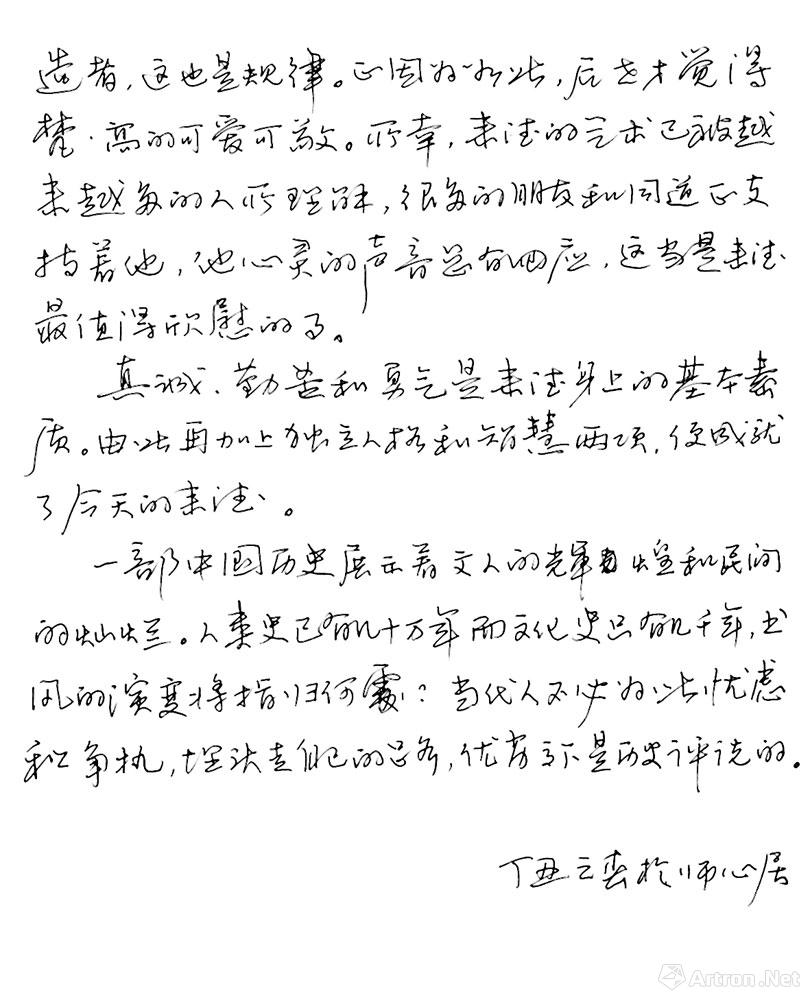 造者，这也是规律。正因为如此，后世才觉得
梵·高的可爱可敬。所幸，来德的艺术已被越
来越多的人所理解，很多的朋友和同道正支
持着他，他心灵的声音总有回应，这当是来德
最值得欣慰的了。
真诚、勤苦和勇气是来德身上的基本素
质。由此再加上独立人格和智慧两项，便成就
了今天的来德。
一部中国历史展示着文人的辉煌和民间
的灿烂。人类史已有几十万年而文化史只有几千年，书
风的演变将指归何处？当代人不必为此忧虑
和争执，埋头走自己的路，优劣高下是历史评说的。
丁丑之春於师心居
Artron.Net